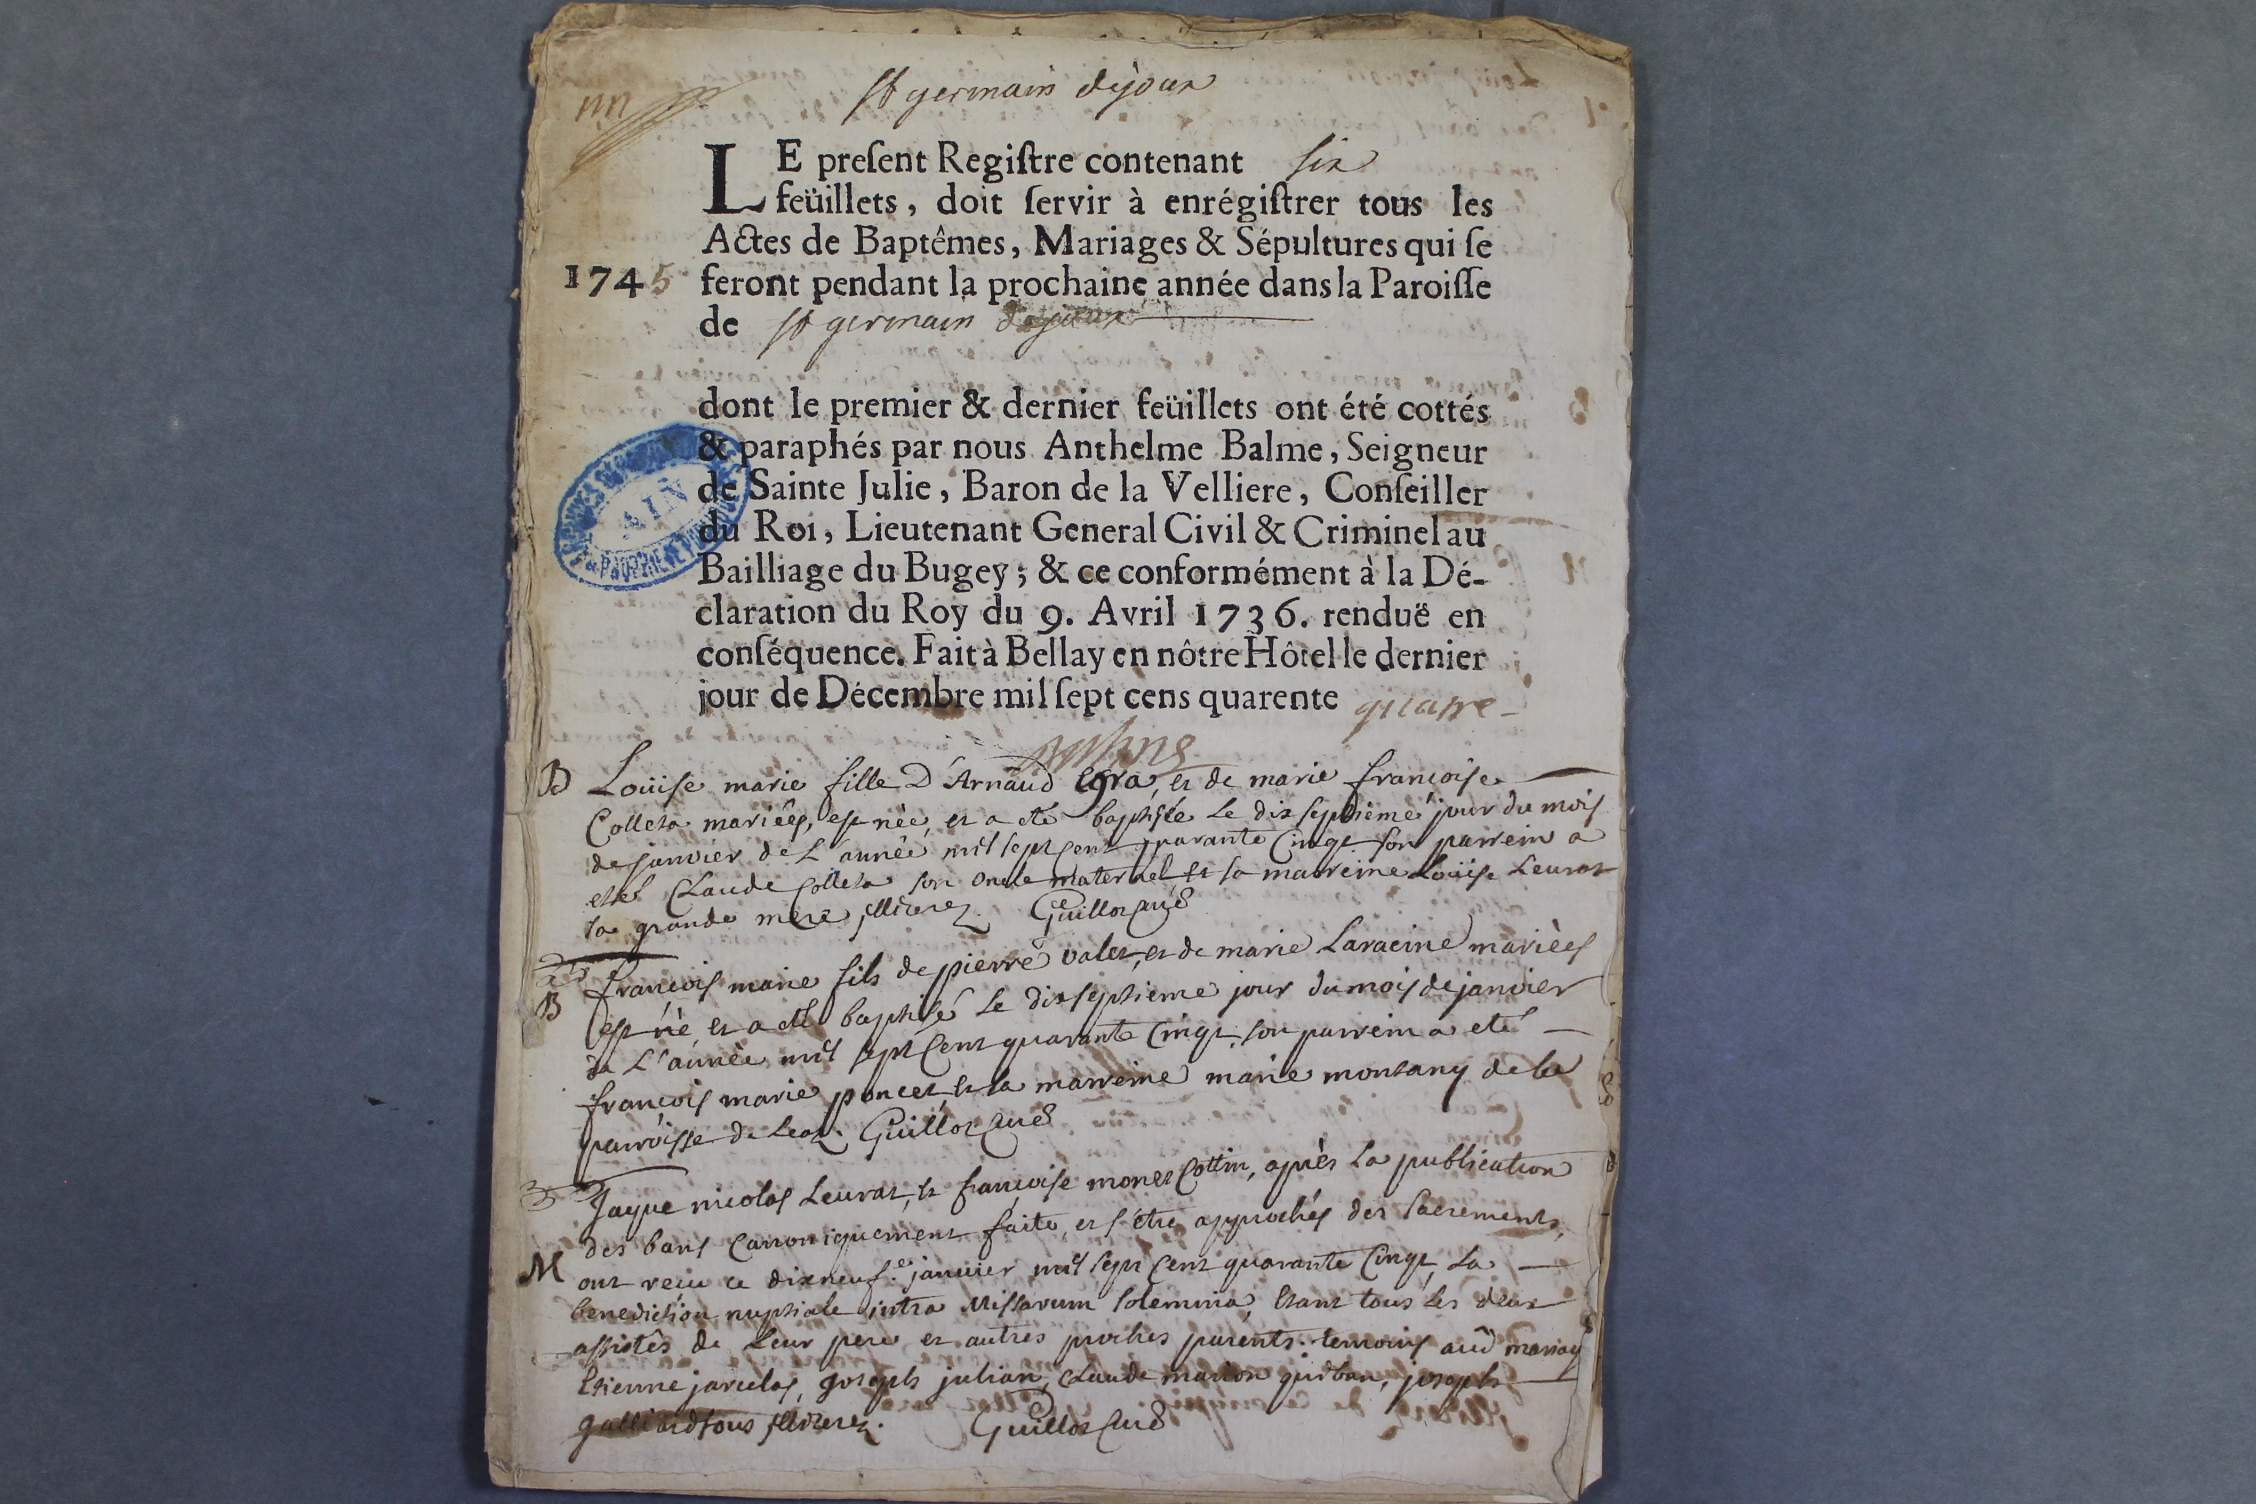 St germain dejoux
LE preſent Regiſtre contenant six
feüillets, doit ſervir à enrégiſtrer tous les
Actes de Baptêmes, Mariages & Sépultures qui ſe
1745 feront pendant la prochaine année dans la Paroiſſe
de St germain dejoux
dont le premier & dernier feüillets ont été cottés
& paraphés par nous Anthelme Balme, Seigneur
de Sainte Julie, Baron de la Velliere, Conſeiller
du Roi, Lieutenant General Civil & Criminel au
Bailliage du Bugey; & ce conformément à la Dé-
claration du Roy du 9. Avril 1736. renduë en
conſéquence. Fait à Bellay en nôtre Hôtel le dernier
jour de Décembre mil ſept cens quarente quatre
AIN
B Loüise marie fille D'Arnaud et de marie françoise
Colleta mariées, est née, et a eté baptisée le dix septième jour du mois
de janvier de L'année mil sept cent quarante Cinqt. son parrein a
eté Claude Colleta son oncle maternel et la marreine Loüise Leurat
sa grande mere illiterez. Guillot curé
françois marie fils de pierre valet, et de marie Laracine mariées
B est né et a eté baptisé le dix septieme jour du mois de janvier
de L'année mil sept Cent quarante Cinqt, son parrein a eté
françois marie poncet, et sa marreine marie montany de la
parroisse de Leaz. Guillot curé
3 Jaque nicolas Leurat, et françoise monet Cottin, après la publication
des bans Canoniquement faite, et s'être approchés des sacrements,
M ont reçu ce dixneuf.e janvier mil sept Cent quarante Cinqt, la
benediction nuptiale intra Missarum solemnia, etant tous les deux
assistés de Leur pere et autres proches parents. temoins aud mariag
Etienne jarcelas, joseph julian, Claude marion joseph
galliard tous illiterez. Guillot curé